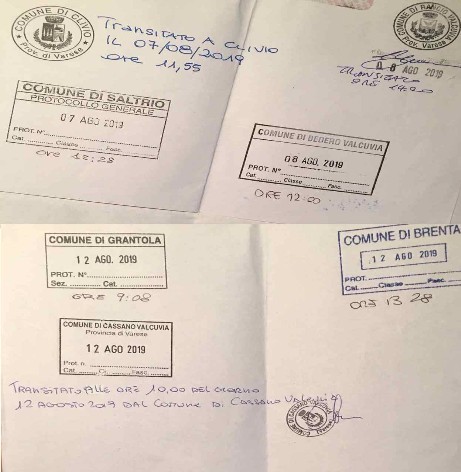 COMUNE DI CLIVIO
Prov. di Varese
TRANSITATO A CLIVIO
IL 07/08/2019
ore 11,55
COMUNE DI SALTRIO
PROTOCOLLO GENERALE
07 AGO 2019
PROT. N°
Cat. Classe Fasc.
ORE 12:28
COMUNE DI RANCIO VALCUVIA
Prov. Varese
08 AGO 2019
TRANSITATO
COMUNE DI BEDERO VALCUVIA
08 AGO. 2019
PROT. N°
Cat. Classe Fasc.
ORE 12:00
COMUNE DI GRANTOLA
12 AGO. 2019
PROT. N.
Sez. Cat.
ORE 9:08
COMUNE DI BRENTA
12 AGO 2019
PROT. N°
Cat. Classe Fasc.
ORE 13 28
COMUNE DI CASSANO VALCUVIA
Provincia di Varese
12 AGO 2019
Prot. n.
Cat. Fasc.
TRANSITATO ALLE ORE 10,00 DEL GIORNO
12 AGOSTO 2019 DAL COMUNE DI CASSANO VALCUVIA